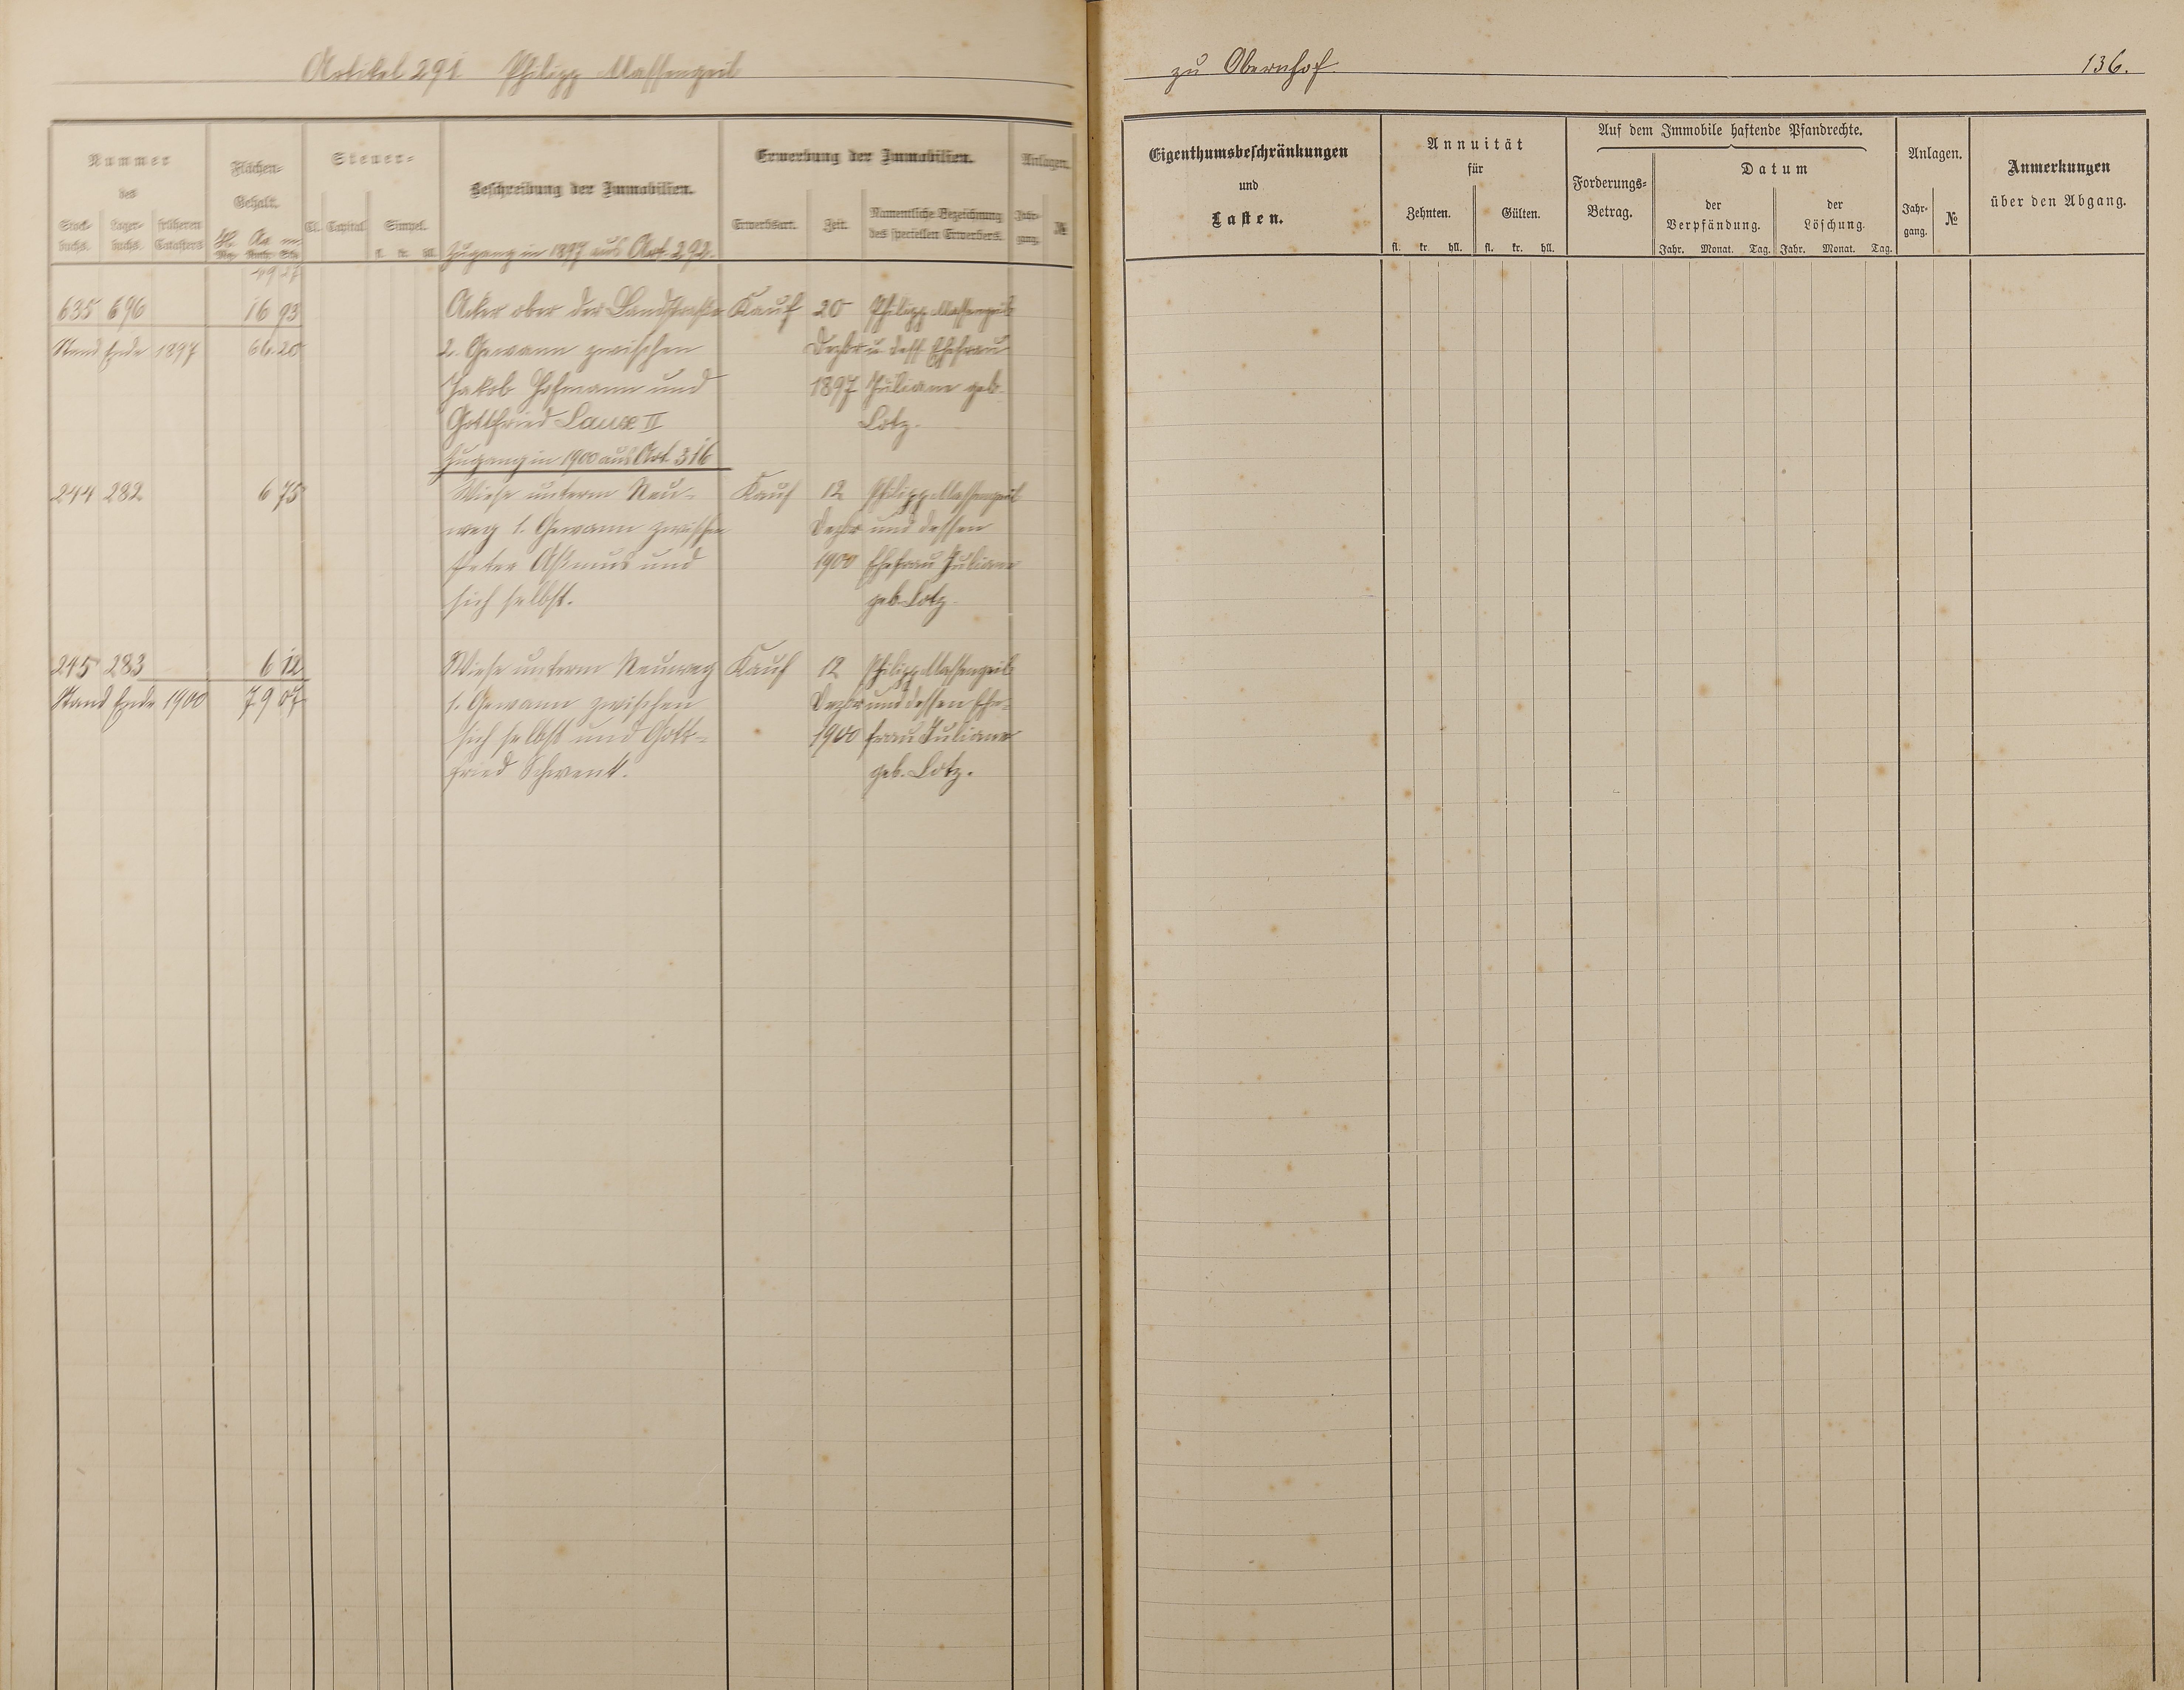 Artikel 291 Philipp Massengeil
Nummer
des
Stock-
buchs.
Lager-
buchs.
früheren
Catasters
Flächen-
Gehalt.
Ha Aa m
Mg. Ruth. Sch.
Steuer-
Cl. Capital Simpel.
fl. kr. hll.
Beschreibung der Immobilien.
Erwerbung der Immobilien.
Erwerbsart. Zeit.
Namentliche Bezeichnung
des speciellen Erwerbers.
Anlagen.
Jahr-
gang.
№
Zugang in 1897 aus Art. 292.
49 27
635 696 16 93 Acker ober der Landstraße Kauf 20 Philipp Massengeil
Stand Ende 1897 66.20 2. Gewann zwischen Dezbr u. dess. Ehefrau
Jakob Hofmann und 1897 Juliane geb.
Gottfried Laux II Lotz.
Zugang in 1900 aus Art. 316
244 282 6 75 Wiese unterm Neu- Kauf 12 Philipp Massengeil
weg 1. Gewann zwischen Dezbr und dessen
Peter Asmus und 1900 Ehefrau Juliane
sich selbst. geb. Lotz.
245 283 6 12 Wiese unterm Neuweg Kauf 12 Philipp Massengeil
Stand Ende 1900 79 07 1. Gewann zwischen Dezbr und dessen Ehe-
sich selbst und Gott- 1900 frau Juliane
fried Schwenk. geb. Lotz.
zu Obernhof. 136.
Eigenthumsbeschränkungen
und
Lasten.
Annuität
für
Zehnten. Gülten.
fl. kr. hll. fl. kr. hll.
Auf dem Immobile haftende Pfandrechte.
Forderungs-
Betrag.
Datum
der
Verpfändung.
der
Löschung.
Jahr. Monat. Tag. Jahr. Monat. Tag.
Anlagen.
Jahr-
gang.
№
Anmerkungen
über den Abgang.